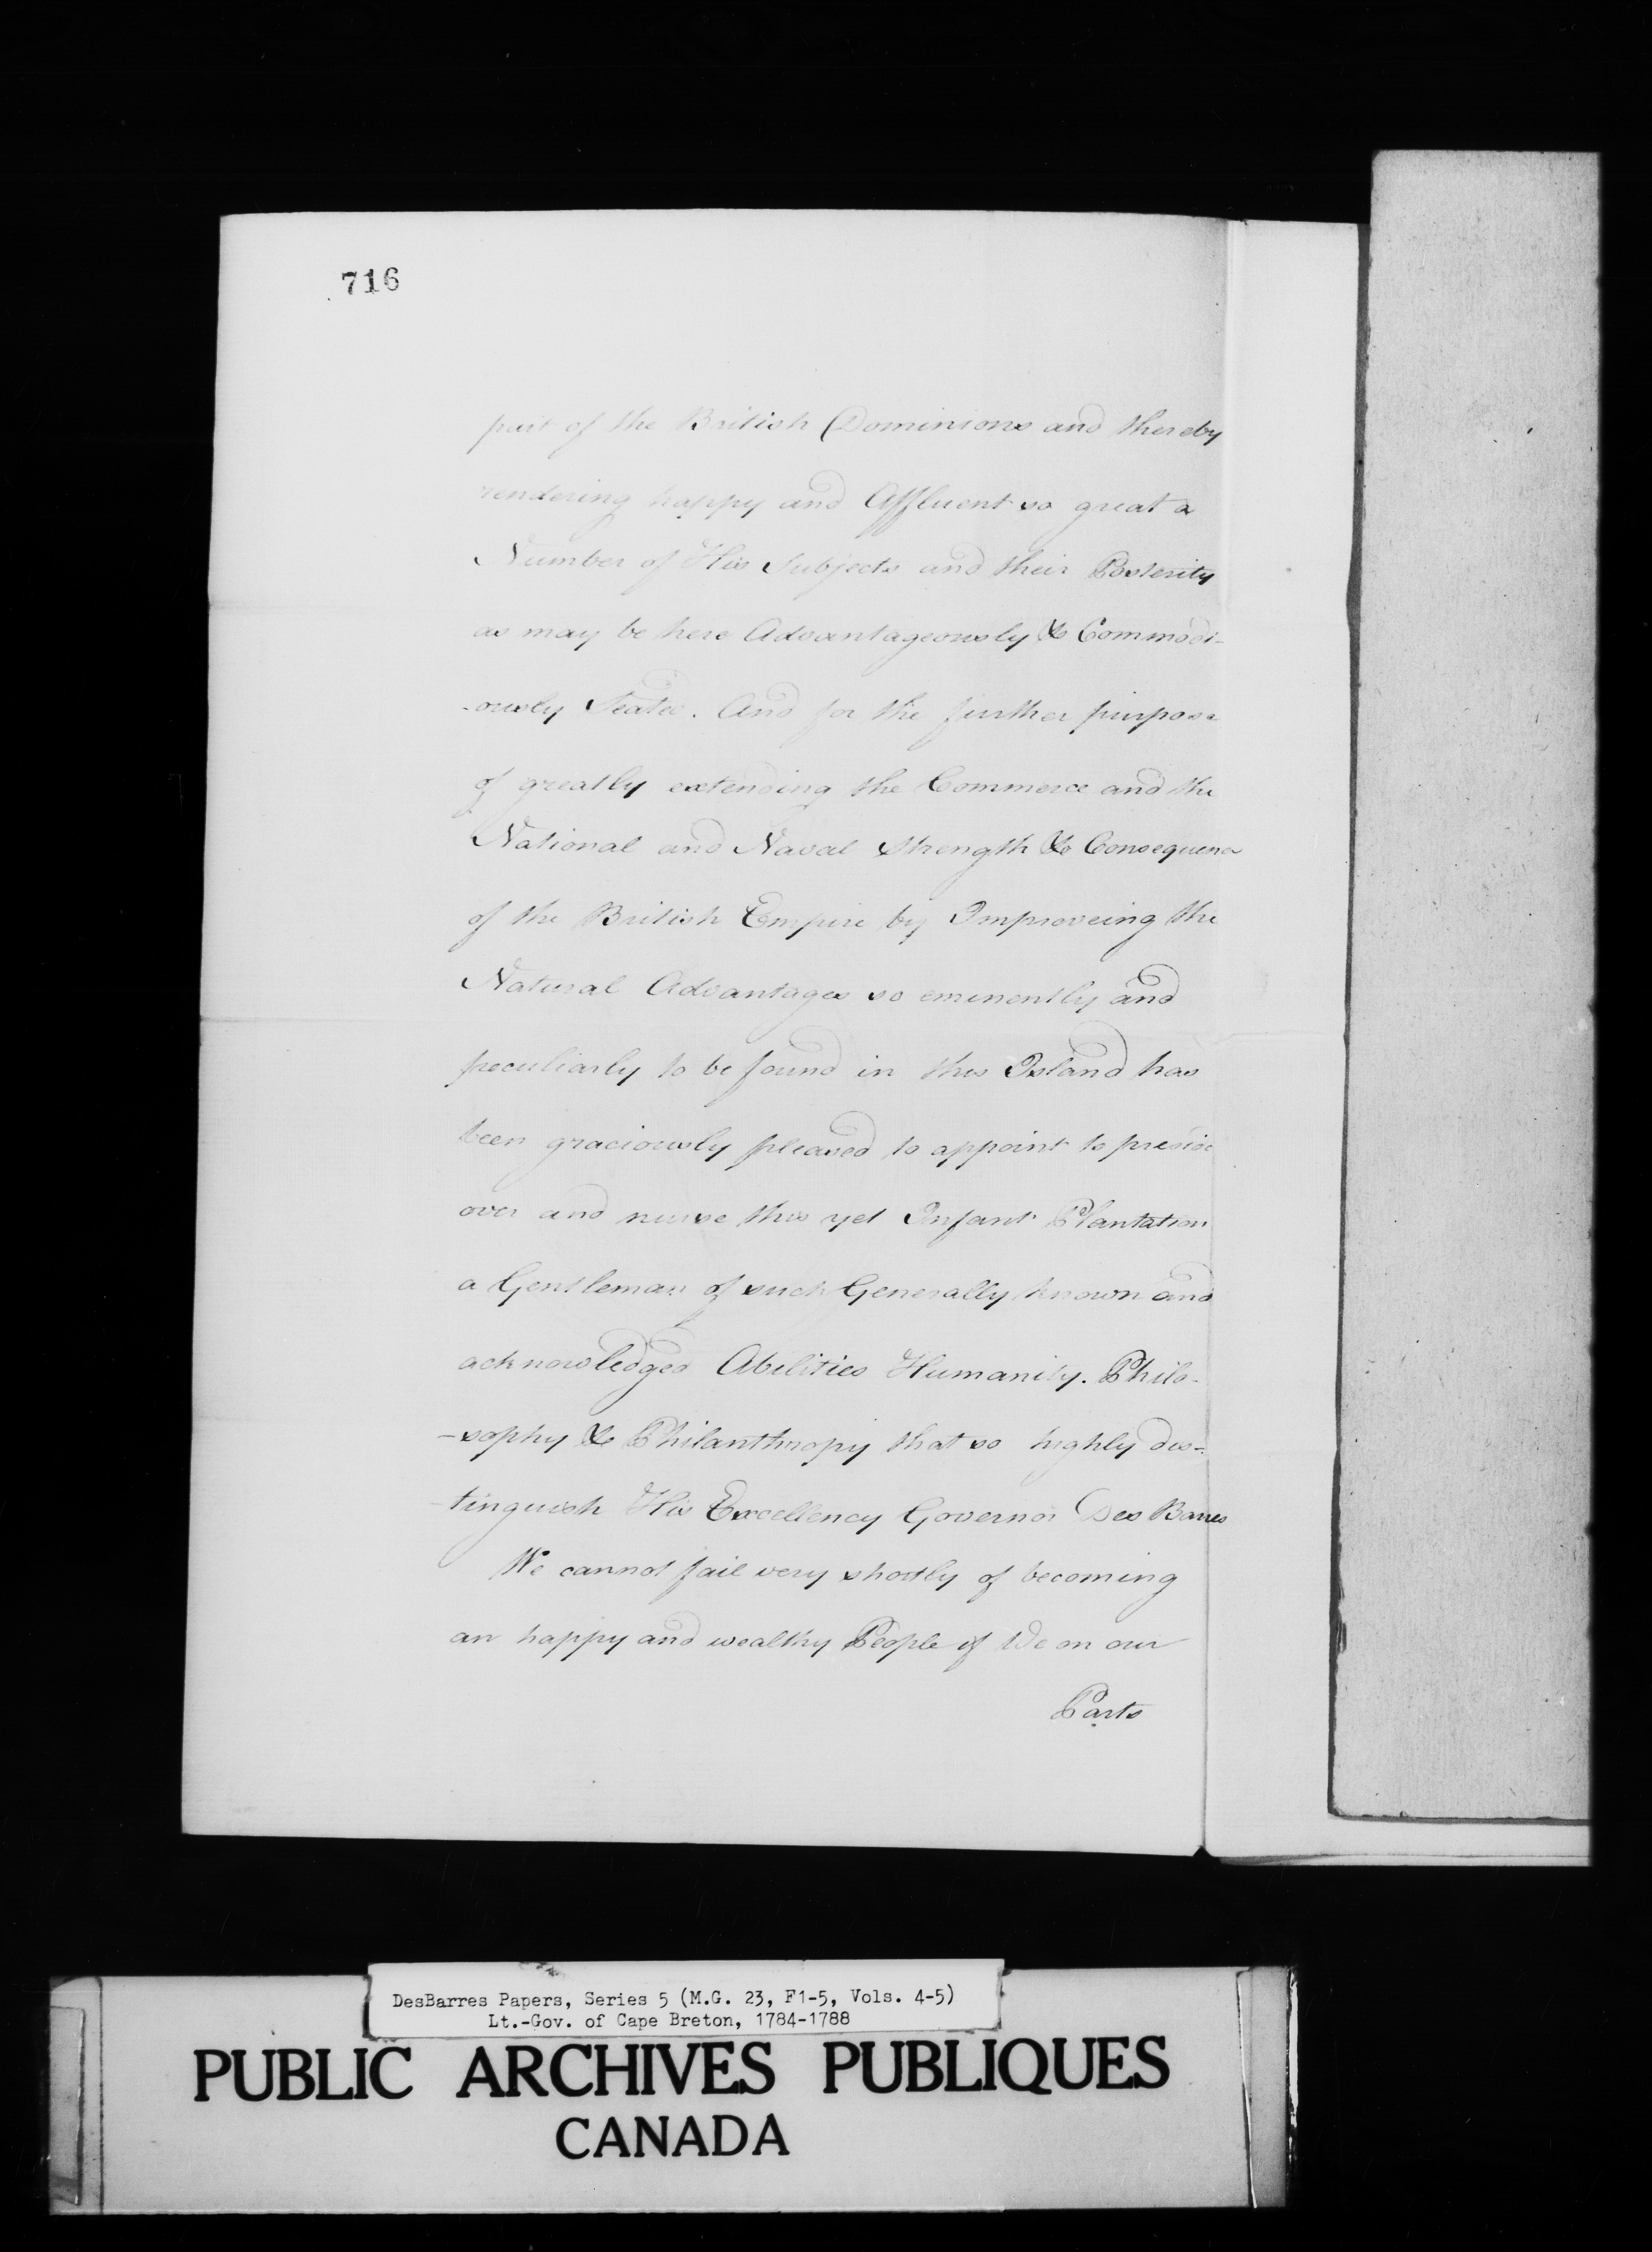 716
part of the British Dominions and thereby
rendering happy and Affluent so great a
Number of His Subjects and their Posterity
as may be here Advantageously & Commodi-
-ously Seated. And for the further purpose
of greatly extending the Commerce and the
National and Naval Strength & Consequence
of the British Empire by Improveing the
Natural Advantages so eminently and
peculiarly to be found in this Island has
been graciously pleased to appoint to preside
over and nurse this yet Infant Plantation
a Gentleman of such Generally known and
acknowledged Abilities Humanity. Philo-
-sophy & Philanthropy that so highly dis-
-tinguish His Excellency Governor Des Barres
We cannot fail very shortly of becoming
an happy and wealthy People if We on our
Parts
DesBarres Papers, Series 5 (M.G. 23, F1-5, Vols. 4-5)
Lt.-Gov. of Cape Breton, 1784-1788
PUBLIC ARCHIVES PUBLIQUES
CANADA